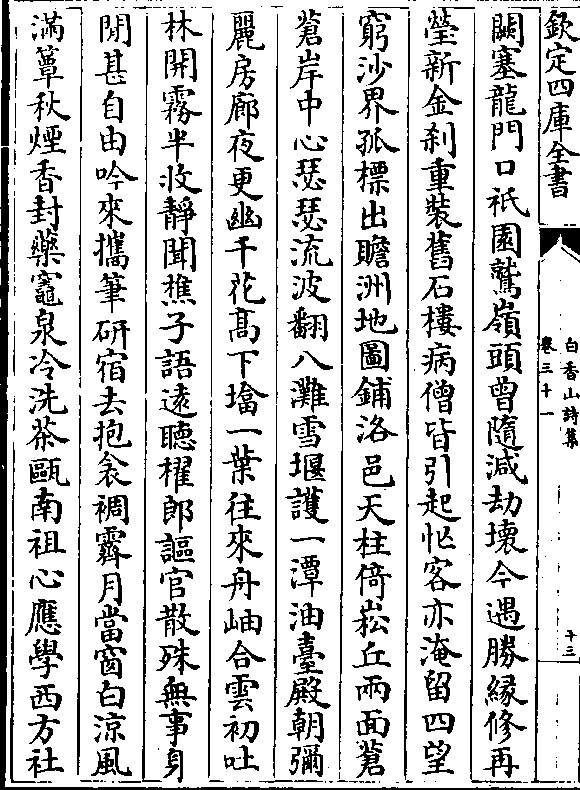 欽定四庫全書
白香山詩集
卷三十一
十三
闕塞龍門口祇園鷲嶺頭曾隨減劫壞今遇勝緣修再
瑩新金刹重裝舊石樓病僧皆引起忙客亦淹留四望
窮沙界孤標出贍洲地圖鋪洛邑天柱倚崧丘兩面蒼
蒼岸中心瑟瑟流波翻八灘雪堰護一潭油臺殿朝彌
麗房廊夜更幽千花高下㙮一葉往來舟岫合雲初吐
林開霧半收靜聞樵子語遠聽櫂郎謳官散殊無事身
閒甚自由吟來攜筆研宿去抱衾裯霽月當窗白涼風
滿簟秋煙香封藥竈泉冷洗茶甌南祖心應學西方社